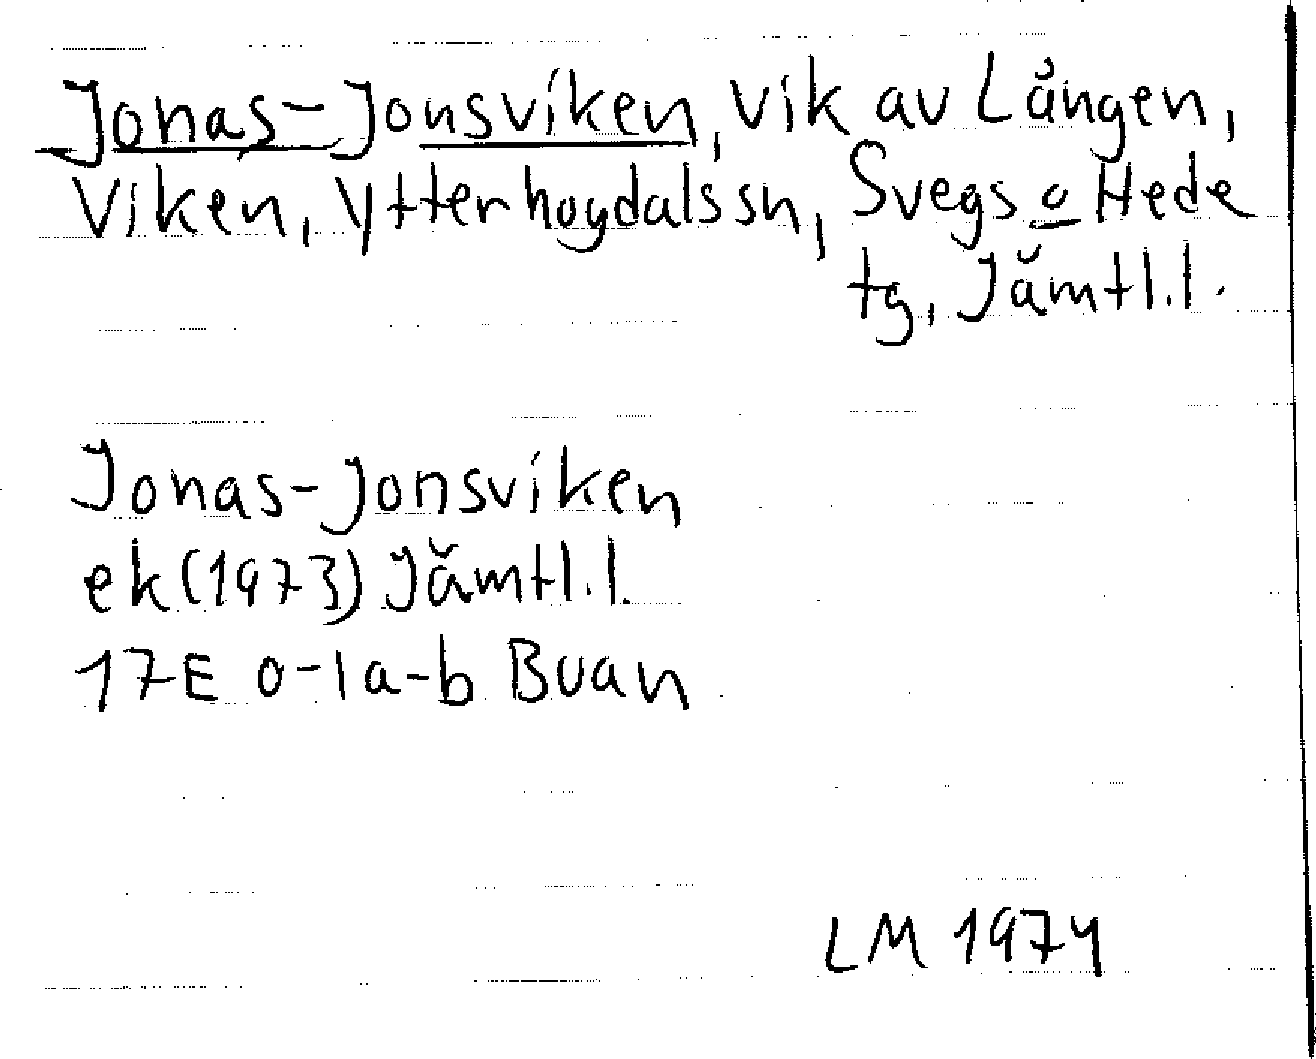 Jonas-Jonsviken, vik av Lången,
Viken, Ytterhogdals sn, Svegs o Hede
tg, Jämtl.l.
Jonas-Jonsviken
ek (1973) Jämtl.l.
17E 0-1a-b Buan
LM 1974